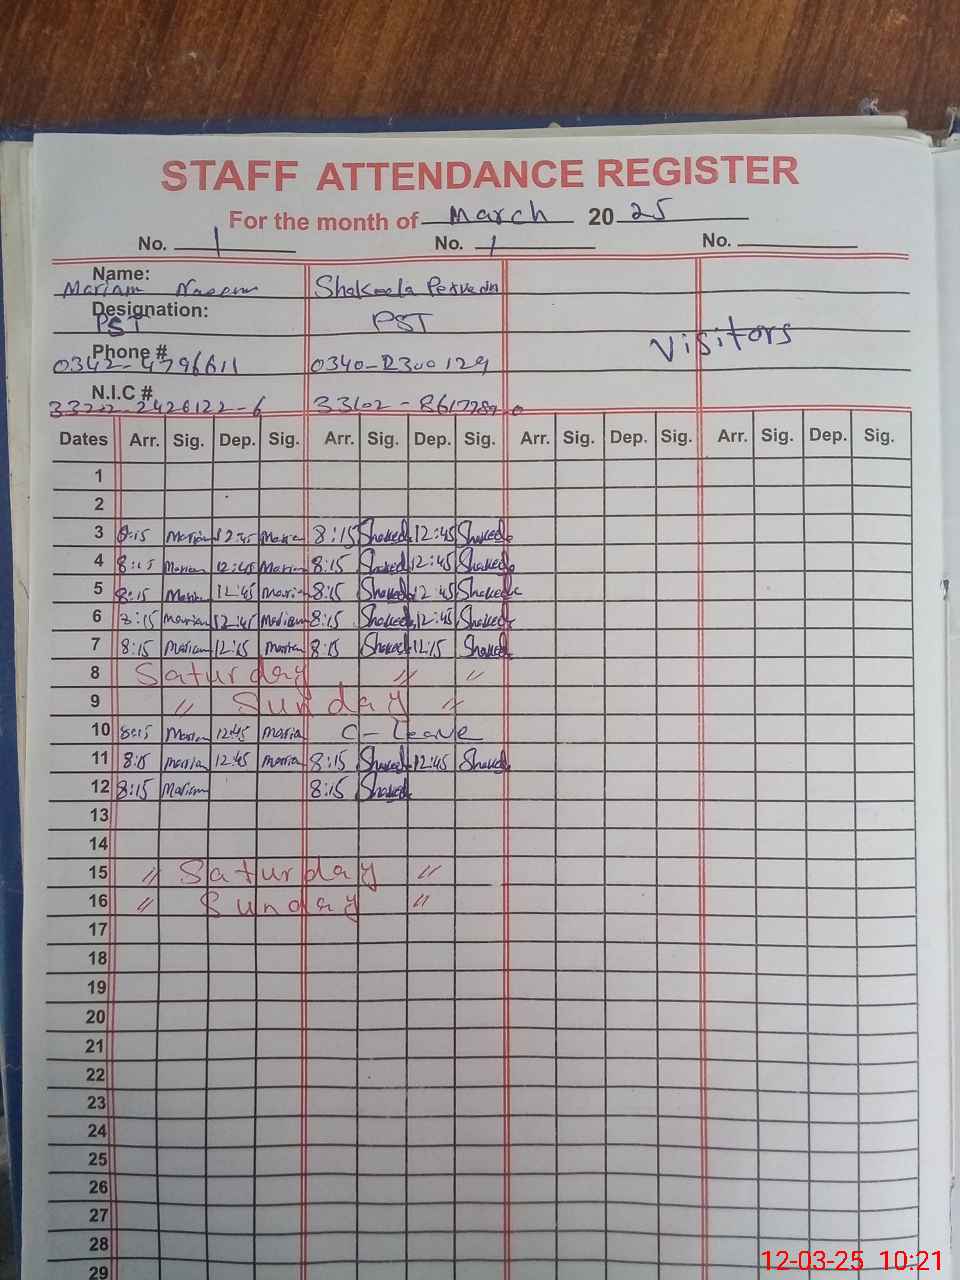 STAFF ATTENDANCE REGISTER
For the month of March 20 25
No. 1 No. 1 No.
Name: Mariam Naeem Shakeela Perveen
Designation: PST PST
Visitors
Phone # 0342-4796611 0340-2300129
N.I.C # 33202-2426122-6 33102-8617789-0
Dates Arr. Sig. Dep. Sig. Arr. Sig. Dep. Sig. Arr. Sig. Dep. Sig. Arr. Sig. Dep. Sig.
1
2
3 8:15 Mariam 12:45 Maria 8:15 Shakeela 12:45 Shakeela
4 8:15 Mariam 12:45 Maria 8:15 Shakeela 12:45 Shakeela
5 8:15 Maria 12:45 Maria 8:15 Shakeela 12:45 Shakeela
6 8:15 Mariam 12:45 Mariam 8:15 Shakeela 12:45 Shakeela
7 8:15 Mariam 12:15 Mariam 8:15 Shakeela 12:15 Shakeela
8 Saturday " "
9 " Sunday "
10 8:15 Maria 12:45 Maria C-Leave
11 8:15 Maria 12:45 Maria 8:15 Shakeela 12:45 Shakeela
12 8:15 Mariam 8:15 Shakeela
13
14
15 " Saturday "
16 " Sunday "
17
18
19
20
21
22
23
24
25
26
27
28
29
12-03-25 10:21